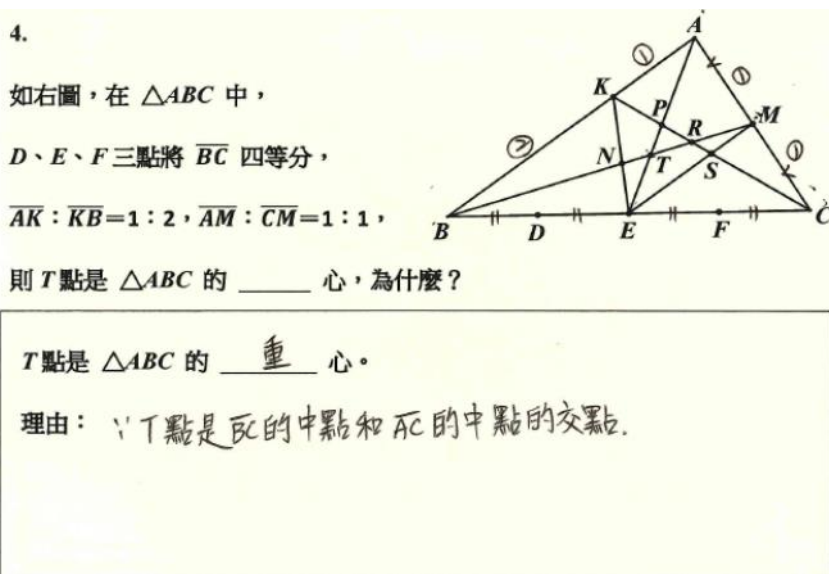 4.
如右圖，在 △ABC 中，
D、E、F 三點將 BC 四等分，
AK：KB＝1：2，AM：CM＝1：1，
則 T 點是 △ABC 的 ______ 心，為什麼？
A
①
①
K
P
M
②
R
N
T
S
①
B
D
E
F
C
T 點是 △ABC 的 重 心。
理由：∵T點是BC的中點和AC的中點的交點.